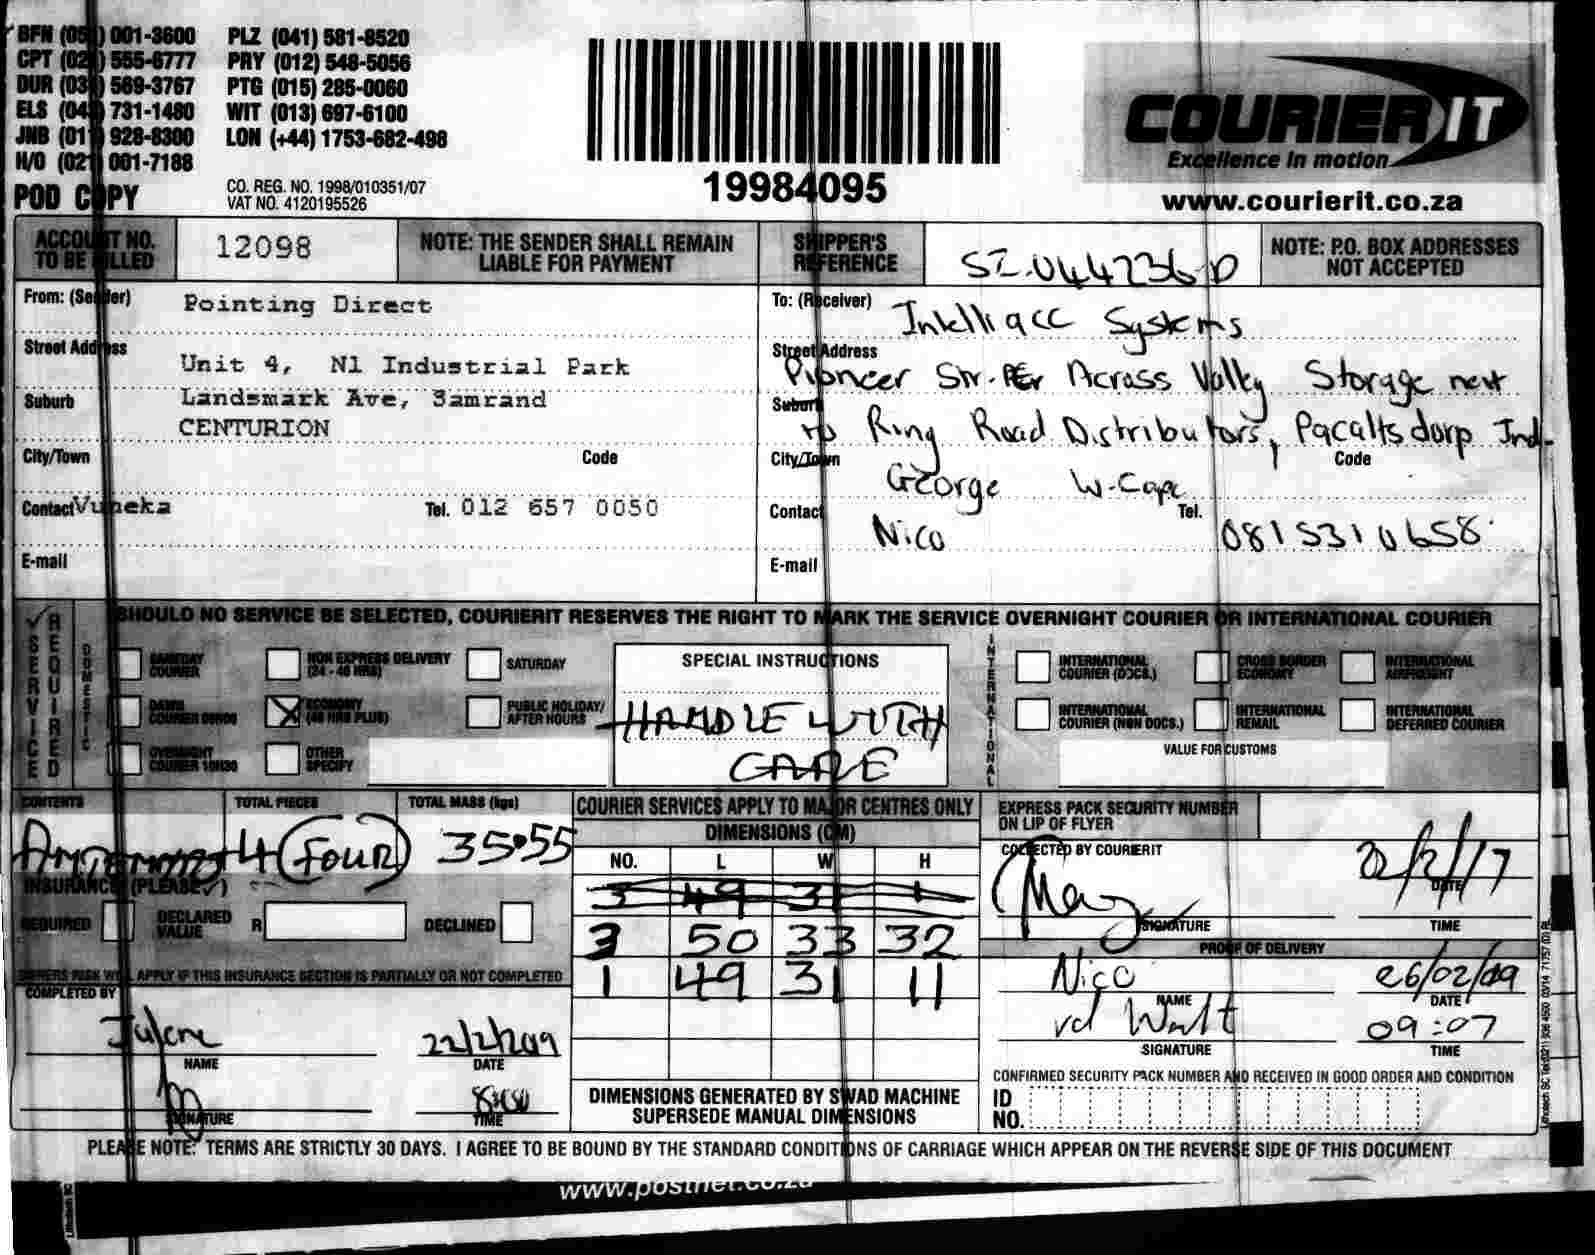 BFN (05 ) 001-3600 PLZ (041) 581-8520
CPT (02 ) 555-6777 PRY (012) 548-5056
DUR (03 ) 569-3767 PTG (015) 285-0060
ELS (04 ) 731-1480 WIT (013) 697-6100
JNB (011) 928-8300 LON (+44) 1753-682-498
H/O (021) 001-7188
POD COPY
CO. REG. NO. 1998/010351/07
VAT NO. 4120195526
19984095
COURIER IT
Excellence in motion
www.courierit.co.za
ACCOUNT NO. TO BE BILLED 12098
NOTE: THE SENDER SHALL REMAIN LIABLE FOR PAYMENT
SHIPPER'S REFERENCE SI-044236-D
NOTE: P.O. BOX ADDRESSES NOT ACCEPTED
From: (Sender) Pointing Direct
Street Address Unit 4, N1 Industrial Park
Suburb Landsmark Ave, Samrand
CENTURION
City/Town Code
Contact Vuneka Tel. 012 657 0050
E-mail
To: (Receiver) Intelliacc Systems
Street Address Pioneer Str. Across Valley Storage next
Suburb to Ring Road Distributors, Pacaltsdorp Ind.
City/Town George W-Cape Code
Contact Nico Tel. 0815310658
E-mail
SERVICE REQUIRED
SHOULD NO SERVICE BE SELECTED, COURIERIT RESERVES THE RIGHT TO MARK THE SERVICE OVERNIGHT COURIER OR INTERNATIONAL COURIER
DOMESTIC
SAMEDAY COURIER
NON EXPRESS DELIVERY (24 - 48 HRS)
SATURDAY
DAWN COURIER
ECONOMY (48 HRS PLUS)
PUBLIC HOLIDAY/ AFTER HOURS
OVERNIGHT COURIER 10H30
OTHER SPECIFY
SPECIAL INSTRUCTIONS
HANDLE WITH
CARE
INTERNATIONAL
INTERNATIONAL COURIER (DOCS.)
CROSS BORDER ECONOMY
INTERNATIONAL AIRFREIGHT
INTERNATIONAL COURIER (NON DOCS.)
INTERNATIONAL REMAIL
INTERNATIONAL DEFERRED COURIER
VALUE FOR CUSTOMS
CONTENTS
TOTAL PIECES 4 (FOUR)
TOTAL MASS (kgs) 35.55
INSURANCE (PLEASE ✓)
REQUIRED
DECLARED VALUE R
DECLINED
OWNERS RISK WILL APPLY IF THIS INSURANCE SECTION IS PARTIALLY OR NOT COMPLETED
COMPLETED BY
NAME
22/2/2019
DATE
SIGNATURE
TIME
COURIER SERVICES APPLY TO MAJOR CENTRES ONLY
DIMENSIONS (CM)
NO. L W H
3 49 31
3 50 33 32
1 49 31 11
DIMENSIONS GENERATED BY SWAD MACHINE
SUPERSEDE MANUAL DIMENSIONS
EXPRESS PACK SECURITY NUMBER ON LIP OF FLYER
COLLECTED BY COURIERIT
DATE
SIGNATURE
TIME
PROOF OF DELIVERY
Nico 26/02/09
NAME DATE
vd Walt 09:07
SIGNATURE TIME
CONFIRMED SECURITY PACK NUMBER AND RECEIVED IN GOOD ORDER AND CONDITION
ID NO.
PLEASE NOTE: TERMS ARE STRICTLY 30 DAYS. I AGREE TO BE BOUND BY THE STANDARD CONDITIONS OF CARRIAGE WHICH APPEAR ON THE REVERSE SIDE OF THIS DOCUMENT
www.postnet.co.za